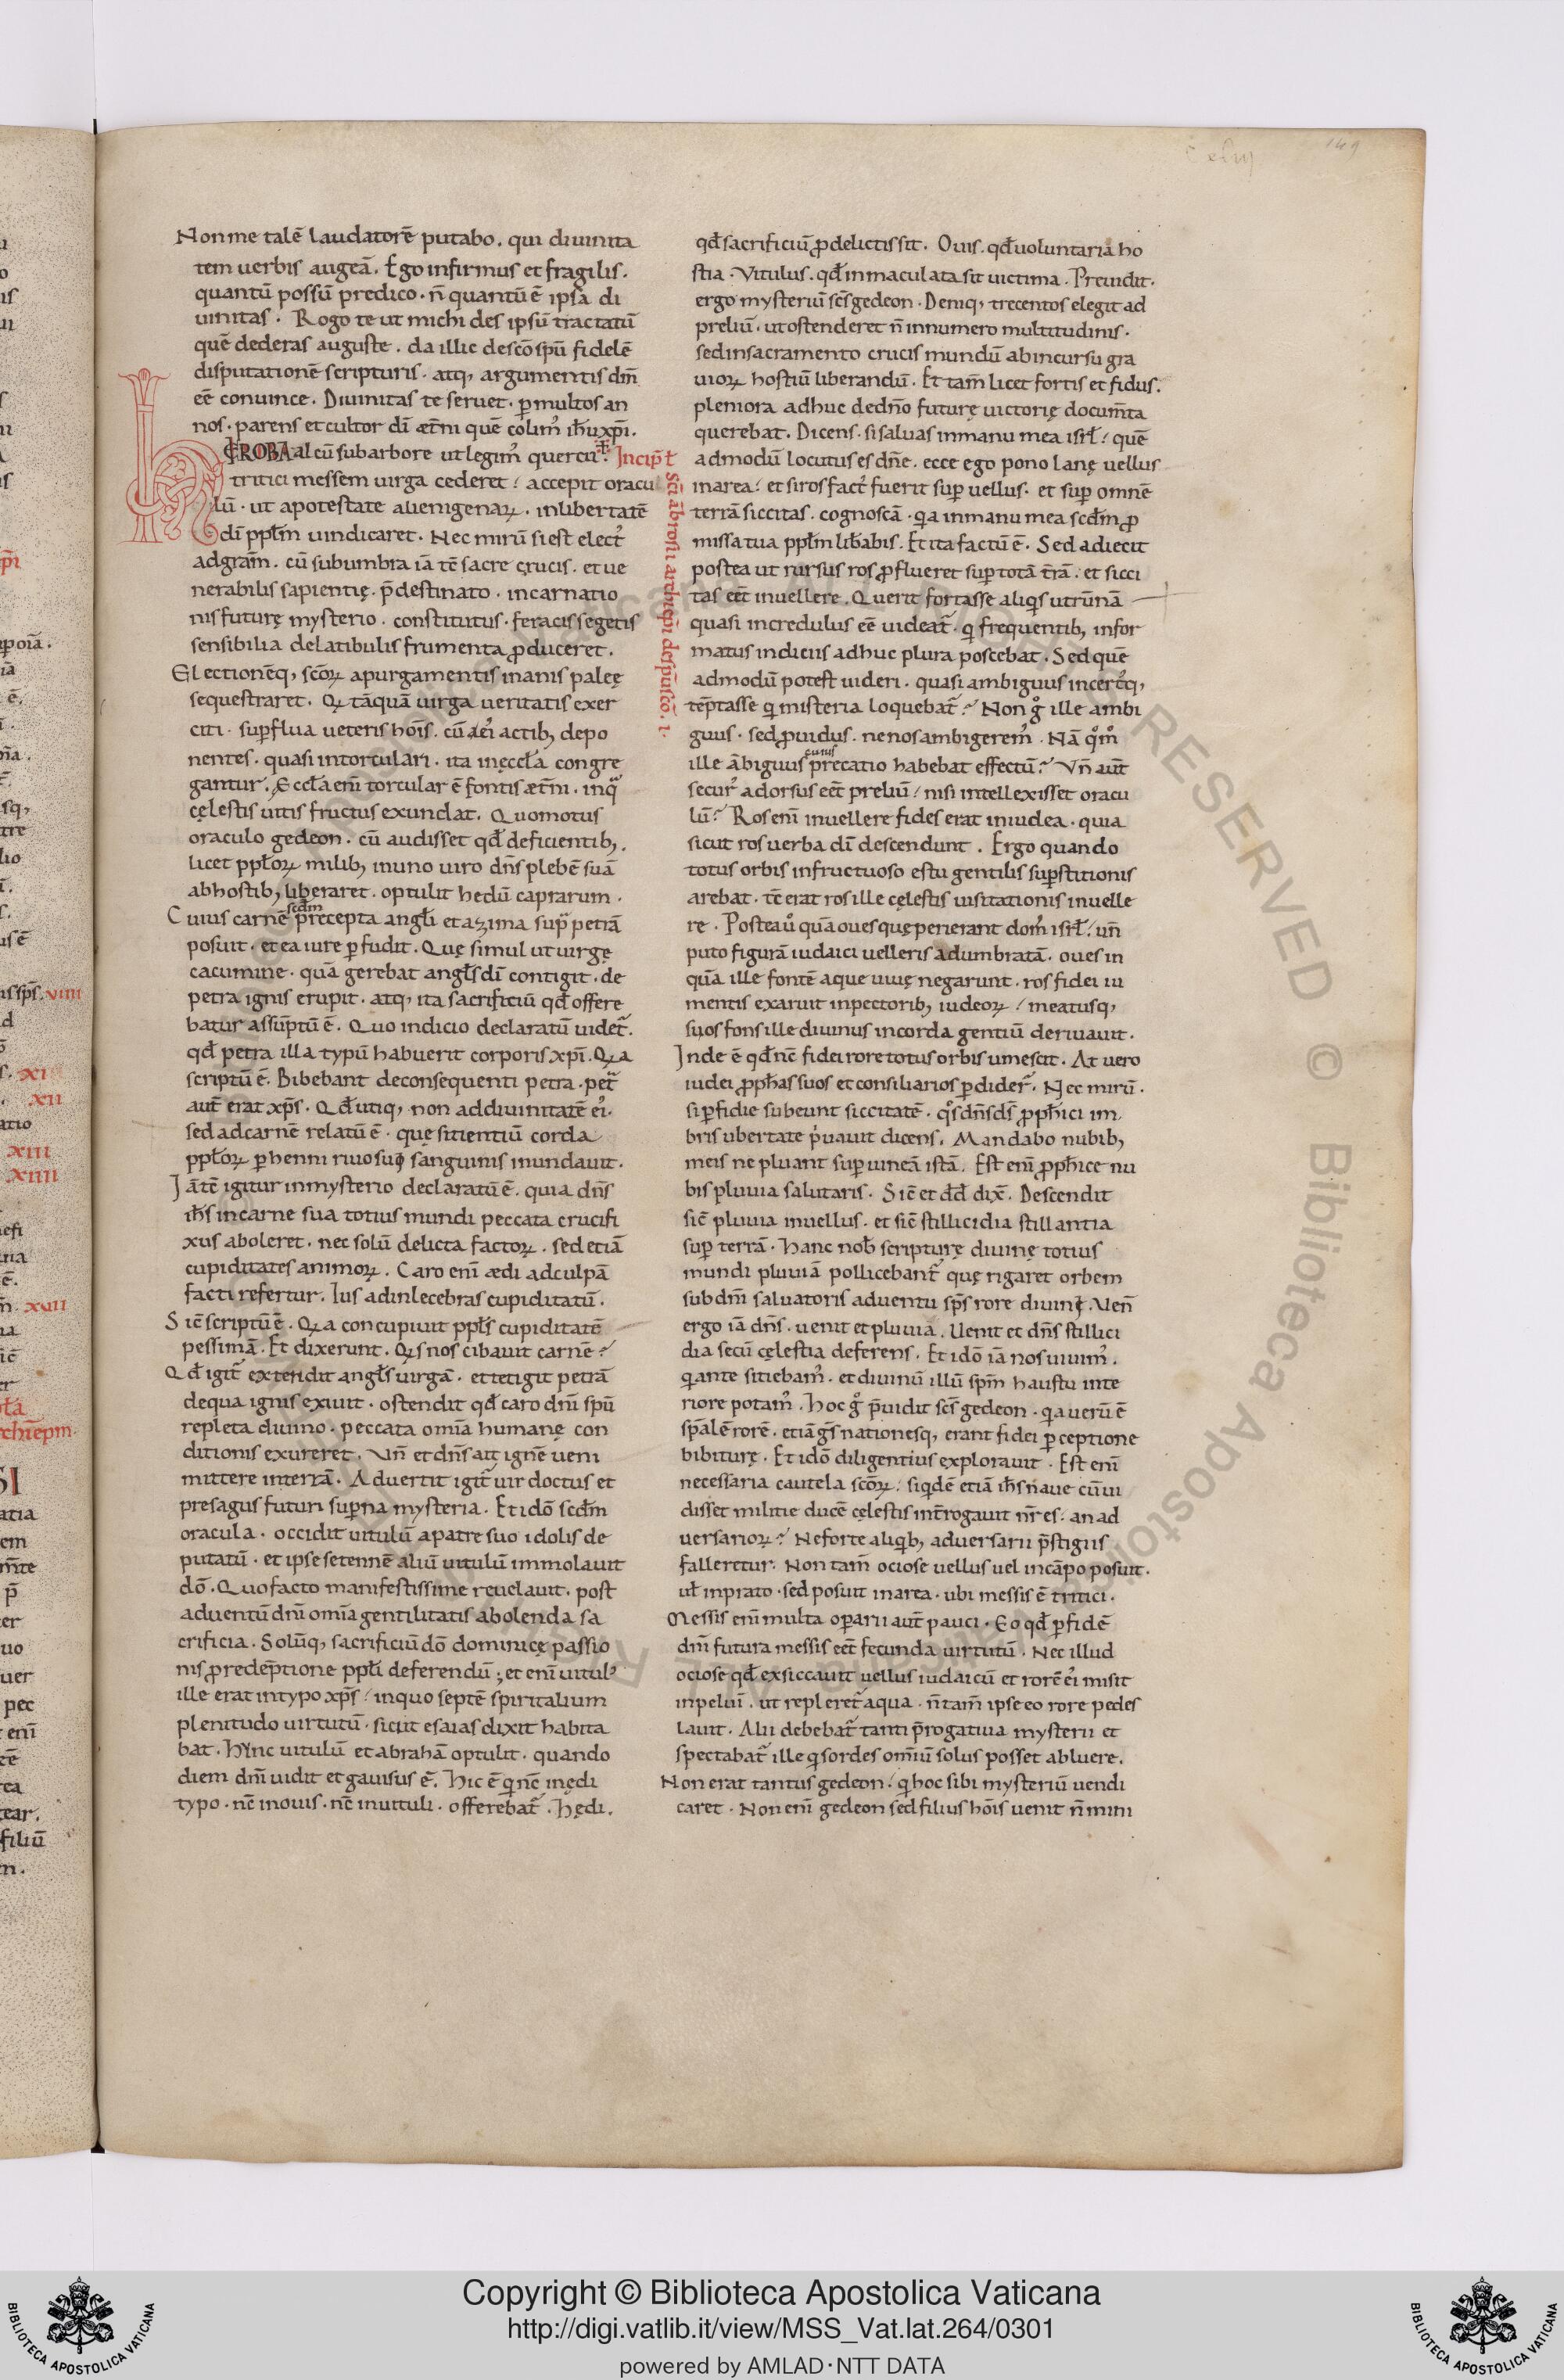 Non me talē laudatorē putabo. qui diuinita
tem uerbis augeā. Ego infirmus et fragilis.
quantū possū predico. n̄ quantū ē ipsa di
uinitas. Rogo te ut michi des ipsū tractatū
quē dederas auguste. da illic de sc̄o sp̄u fidelē
disputationē scripturis. atq, argumentis dm̄
eē conuince. Diuinitas te seruet. ꝑ multos an
nos. parens et cultor dī æt̄ni quē colim᷒ ih̄u xp̄i.
hEROBAal cū sub arbore ut legim᷒ quercu. Incip̄t
tritici messem uirga cederet. accepit oracu
lū. ut a potestate alienigenaꝝ. in libertatē
dī ppl̄m uindicaret. Nec mirū si est elect᷒
ad gr̄am. cū sub umbra iā tē sacre crucis. et ue
nerabilis sapientię. p̄destinato. incarnatio
nis futurę mysterio. constitutus. feracis segetis
sensibilia de latibulis frumenta ꝓduceret.
Electionēq, sc̄oꝝ a purgamentis inanis paleę
sequestraret. Qꝛ tāquā uirga ueritatis exer
citi. suꝑflua ueteris hōis. cū ei᷒ actib, depo
nentes. quasi in torculari. ita in ęccl̄a congre
gantur. Eccl̄a enī torcular ē fontis æt̄ni. in qͣ
cęlestis uitis fructus exundat. Quo motus
oraculo gedeon. cū audisset qđ deficientib,.
licet ppl̄oꝝ milib, in uno uiro dn̄s plebē suā
ab hostib, liberaret. optulit hedū caprarum.
Cuius carnē scđm precepta angl̄i et azima supͣ petrā
posuit. et ea iure ꝑfudit. Quę simul ut uirgę
cacumine. quā gerebat angl̄s dī contigit. de
petra ignis erupit. atq, ita sacrificiū qđ offere
batur assūptū ē. Quo indicio declaratū uidet᷑.
qđ petra illa typū habuerit corporis xp̄i. Qꝛa
scriptū ē. Bibebant de consequenti petra. petͣ
aut̄ erat xp̄s. Qđ utiq, non ad diuinitatē ei᷒.
sed ad carnē relatū ē. quę sitientiū corda
ppl̄oꝝ ꝑhenni riuo sui sanguinis inundauit.
Iā tē igitur in mysterio declaratū ē. quia dn̄s
ih̄s in carne sua totius mundi peccata crucifi
xus aboleret. nec solū delicta factoꝝ. sed etiā
cupiditates animoꝝ. Caro enī ædi ad culpā
facti refertur. Ius ad inlecebras cupiditatū.
Sic̄ scriptū ē. Qꝛa concupiuit ppl̄s cupiditatē
pessimā. Et dixerunt. Qꝛs nos cibauit carnē?
Qđ igit᷑ extendit angl̄s uirgā. et tetigit petrā
de qua ignis exiuit. ostendit qđ caro dn̄i sp̄u
repleta diuino. peccata omīa humanę con
ditionis exureret. Vn̄ et dn̄s ait ignē ueni
mittere in terrā. Aduertit igit᷑ uir doctus et
presagus futuri suꝑna mysteria. Et idō scđm
oracula. occidit uitulū a patre suo idolis de
putatū. et ipse setennē aliū uitulū immolauit
dō. Quo facto manifestissime reuelauit. post
aduentū dn̄i omīa gentilitatis abolenda sa
crificia. Solūq, sacrificiū dō dominicę passio
nis ꝓ redēptione ppl̄i deferendū; et enī uitul᷒
ille erat in typo xp̄s. in quo septē spiritalium
plenitudo uirtutū. sicut esaias dixit habita
bat. Hinc uitulū et abrahā optulit. quando
diem dn̄i uidit et gauisus ē. Hic ē qͥ nc̄ in ędi
typo. nc̄ in ouis. nc̄ in uituli. offerebat᷑. Hędi.
sc̄i ābrosii archiep̄i de sp̄u sc̄o. i.
qđ sacrificiū ꝓ delictis sit. Ouis. qđ uoluntaria ho
stia. Vitulus. qđ inmaculata sit uictima. Preuidit.
ergo mysteriū sc̄s gedeon. Deniq, trecentos elegit ad
preliū. ut ostenderet n̄ in numero multitudinis.
sed in sacramento crucis mundū ab incursu gra
uioꝝ hostiū liberandū. Et tam̄ licet fortis et fidus.
pleniora adhuc de dn̄o futurę uictorię docum̄ta
querebat. Dicens. si saluas in manu mea isrl̄. quē
admodū locutus es dn̄e. ecce ego pono lanę uellus
in area. et si ros fact᷒ fuerit suꝑ uellus. et suꝑ omnē
terrā siccitas. cognoscā. qͥa in manu mea scđm ꝓ
missa tua ppl̄m lib̄abis. Et ita factū ē. Sed adiecit
postea ut rursus ros ꝓflueret suꝑ totā t̄rā. et sicci
tas eēt in uellere. Querit fortasse aliqͥs utrūnā
quasi incredulus eē uideat᷑. qͥ frequentib, infor
matus indiciis adhuc plura poscebat. Sed quē
admodū potest uideri. quasi ambiguus incert᷒q,
tēptasse qͥ misteria loquebat᷑? Non gͦ ille ambi
guus. sed ꝓuidus. ne nos ambigerem᷒. Nā qͦm̊
ille ābiguus cuius precatio habebat effectū? Vn̄ aut̄
secur᷒ adorsus eēt preliū. nisi intellexisset oracu
lū? Ros enī in uellere fides erat in iudea. quia
sicut ros uerba dī descendunt. Ergo quando
totus orbis infructuoso estu gentilis suꝑstitionis
arebat. tc̄ erat ros ille cęlestis uisitationis in uelle
re. Postea u᷒ quā oues quę perierant dom᷒ isrl̄. un̄
puto figurā iudaici uelleris adumbratā. oues in
quā ille fontē aque uiuę negarunt. ros fidei iu
mentis exaruit in pectorib, iudeoꝝ. meatusq,
suos fons ille diuinus in corda gentiū deriuauit.
Inde ē qđ nc̄ fidei rore totus orbis umescit. At uero
iudei ꝓph̄as suos et consiliarios ꝑdider᷑. Nec mirū.
si ꝑfidie subeunt siccitatē. qͦs dn̄s ds̄ ꝓph̄ici im
bris ubertate pͥuauit dicens. Mandabo nubib,
meis ne pluant suꝑ uineā istā. Est enī ꝓph̄ice nu
bis pluuia salutaris. Sic̄ et dđ dix̄. Descendit
sic̄ pluuia in uellus. et sic̄ stillicidia stillantia
suꝑ terrā. Hanc nob̄ scripturę diuinę totius
mundi pluuiā pollicebant᷑ quę rigaret orbem
sub dn̄i saluatoris aduentu sp̄s rore diuini. Uen̄
ergo iā dn̄s. uenit et pluuia. Uenit et dn̄s stillici
dia secū cęlestia deferens. Et idō iā nos uiuim᷒.
qͥ ante sitiebam᷒. et diuinū illū sp̄m haustu inte
riore potam᷒. Hoc gͦ p̄uidit sc̄s gedeon. qͥa uerū ē
sp̄alē rorē. etiā gs̄ nationesq, erant fidei ꝑceptione
bibiturę. Et idō diligentius explorauit. Est enī
necessaria cautela sc̄oꝝ. siqͥdē etiā ih̄s naue cū ui
disset militie ducē cęlestis int̄rogauit nr̄ es. an ad
uersarioꝝ? Ne forte aliqͥb, aduersarii p̄stigiis
falleretur. Non tam̄ ociose uellus uel in cāpo posuit.
ul̄ in prato. sed posuit in area. ubi messis ē tritici.
Messis enī multa oꝑarii aut̄ pauci. Eo qđ ꝑ fidē
dn̄i futura messis eēt fecunda uirtutū. Nec illud
ociose qđ exsiccauit uellus iudaicū et rorē ei᷒ misit
in peluī. ut repleret᷑ aqua. n̄ tam̄ ipse eo rore pedes
lauit. Alii debebat᷑ tanti p̄rogatiua mysterii et
spectabat᷑ ille qͥ sordes om̄iū solus posset abluere.
Non erat tantus gedeon. qͥ hoc sibi mysteriū uendi
caret. Non enī gedeon sed filius hōis uenit n̄ mini
Copyright © Biblioteca Apostolica Vaticana
http://digi.vatlib.it/view/MSS_Vat.lat.264/0301
powered by AMLAD·NTT DATA